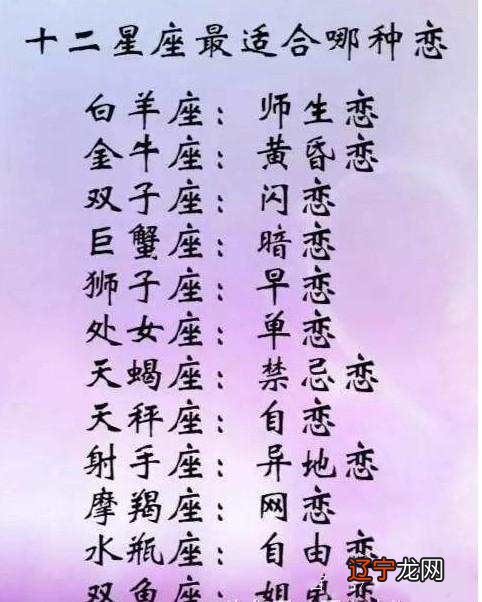 十二星座最适合哪种恋
白羊座：师生恋
金牛座：黄昏恋
双子座：闪恋
巨蟹座：暗恋
狮子座：早恋
处女座：单恋
天蝎座：禁忌恋
天秤座：自恋
射手座：异地恋
摩羯座：网恋
水瓶座：自由恋
双鱼座：姐弟恋
辽宁龙网